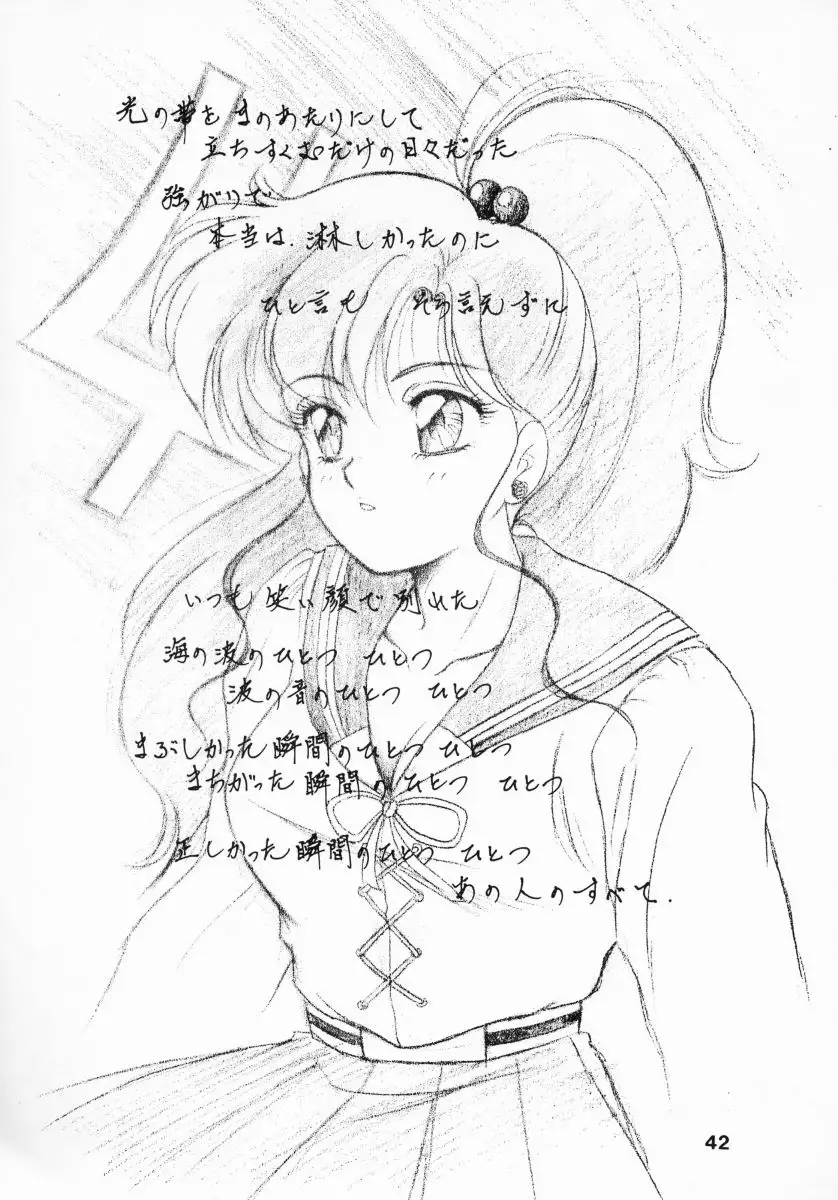 光の帯を まのあたりにして
立ちすくむだけの日々だった
強がりで
本当は、淋しかったのに
ひと言も そう言えずに
いつも 笑い顔で別れた
海の波のひとつ ひとつ
波の音のひとつ ひとつ
まぶしかった瞬間のひとつ ひとつ
まちがった瞬間のひとつ ひとつ
正しかった瞬間のひとつ ひとつ
あの人のすべて.
42